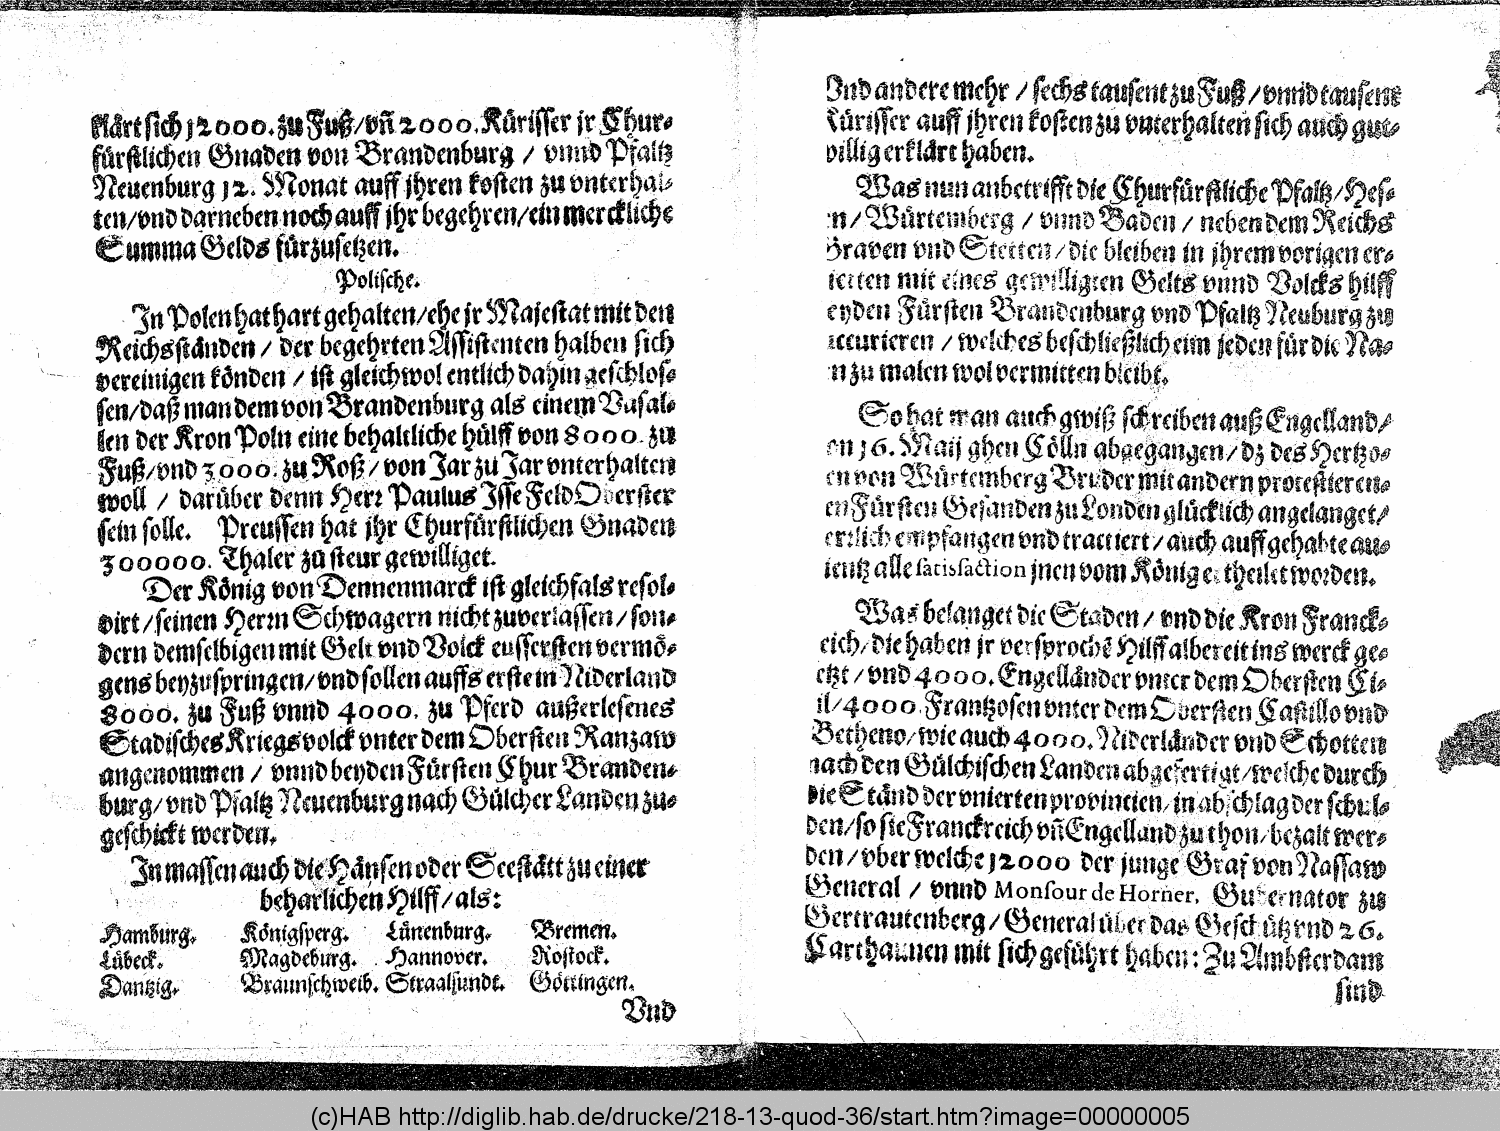 klärt sich 12000. zu Fuß/vñ 2000. Kürisser jr Chur-
fürstlichen Gnaden von Brandenburg / vnnd Pfaltz
Neuenburg 12. Monat auff jhren kosten zu vnterhal-
ten/vnd darneben noch auff jhr begehren/ein merckliche
Summa Gelds fürzusetzen.
Polische.
In Polen hat hart gehalten/ehe jr Majestat mit den
Reichsständen / der begehrten Assistenten halben sich
vereinigen könden / ist gleichwol entlich dahin geschlos-
sen/daß man dem von Brandenburg als einem Vasal-
len der Kron Poln eine behaltliche hülff von 8000. zu
Fuß/vnd 3000. zu Roß/von Jar zu Jar vnterhalten
woll / darüber denn Herr Paulus Isse FeldOberster
sein solle. Preussen hat jhr Churfürstlichen Gnaden
300000. Thaler zu steur gewilliget.
Der König von Dennenmarck ist gleichfals resol-
virt/seinen Herrn Schwagern nicht zuverlassen/son-
dern demselbigen mit Gelt vnd Volck eussersten vermö-
gens beyzuspringen/vnd sollen auffs erste in Niderland
8000. zu Fuß vnnd 4000. zu Pferd außerlesenes
Stadisches Kriegsvolck vnter dem Obersten Ranzaw
angenommen / vnnd beyden Fürsten Chur Branden-
burg/vnd Pfaltz Neuenburg nach Gülcher Landen zu-
geschickt werden.
In massen auch die Hänsen oder Seestätt zu einer
beharlichen Hilff/als:
Hamburg. Königsperg. Lünenburg. Bremen.
Lübeck. Magdeburg. Hannover. Rostock.
Dantzig. Braunschweib. Straalsundt. Göttingen.
Vnd
Vnd andere mehr / sechs tausent zu Fuß/vnnd tausent
Kürisser auff jhren kosten zu vnterhalten sich auch gut-
villig erklärt haben.
Was nun anbetrifft die Churfürstliche Pfaltz/Hes-
n/Würtemberg / vnnd Baden / neben dem Reichs
Graven vnd Stetten/die bleiben in jhrem vorigen er-
ierten mit eines gewilligten Gelts vnnd Volcks hilff
eyden Fürsten Brandenburg vnd Pfaltz Neuburg zu
ccurieren / welches beschließlich eim jeden für die Na-
n zu malen wol vermitten bleibt.
So hat man auch gwiß schreiben auß Engelland/
en 16. Maij ghen Cölln abgegangen/dz des Hertzo-
en von Würtemberg Bruder mit andern protestieren-
en Fürsten Gesanden zu Londen glücklich angelanget/
errlich empfangen vnd tractiert/auch auff gehabte au-
ientz alle satisfaction jnen vom König ertheilet worden.
Was belanget die Staden/vnd die Kron Franck-
eich/die haben jr versprochẽ Hilff albereit ins werck ge-
etzt/vnd 4000. Engelländer vnter dem Obersten Ci-
il/4000. Frantzosen vnter dem Obersten Castillo vnd
Betheno/wie auch 4000. Niderländer vnd Schotten
nach den Gülchischen Landen abgefertigt/welche durch
die Ständ der vnierten provintien/in abschlag der schul-
den/so sie Franckreich vñ Engelland zu thon/bezalt wer-
den/vber welche 12000 der junge Graf von Nassaw
General / vnnd Monsour de Horner, Gubernator zu
Gertrautenberg/General über das Geschütz vnd 26.
Carthaunen mit sich geführt haben: Zu Ambsterdam
sind
(c)HAB http://diglib.hab.de/drucke/218-13-quod-36/start.htm?image=00000005